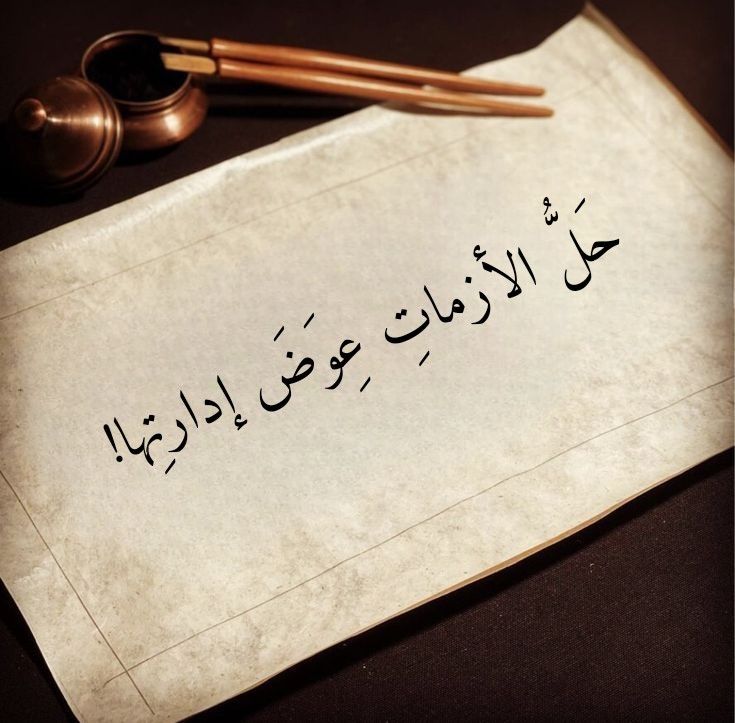 حَلُّ الأزماتِ عِوَضَ إدارتِها!